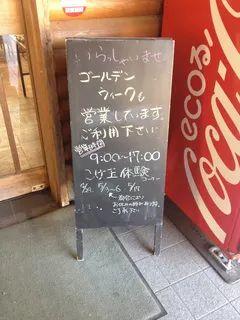 いらっしゃいませ
ゴールデン
ウィークも
営業しています。
ご利用下さい
営業時間
9:00~17:00
こけ玉体験
コーナー
ecoる
Coca-Cola